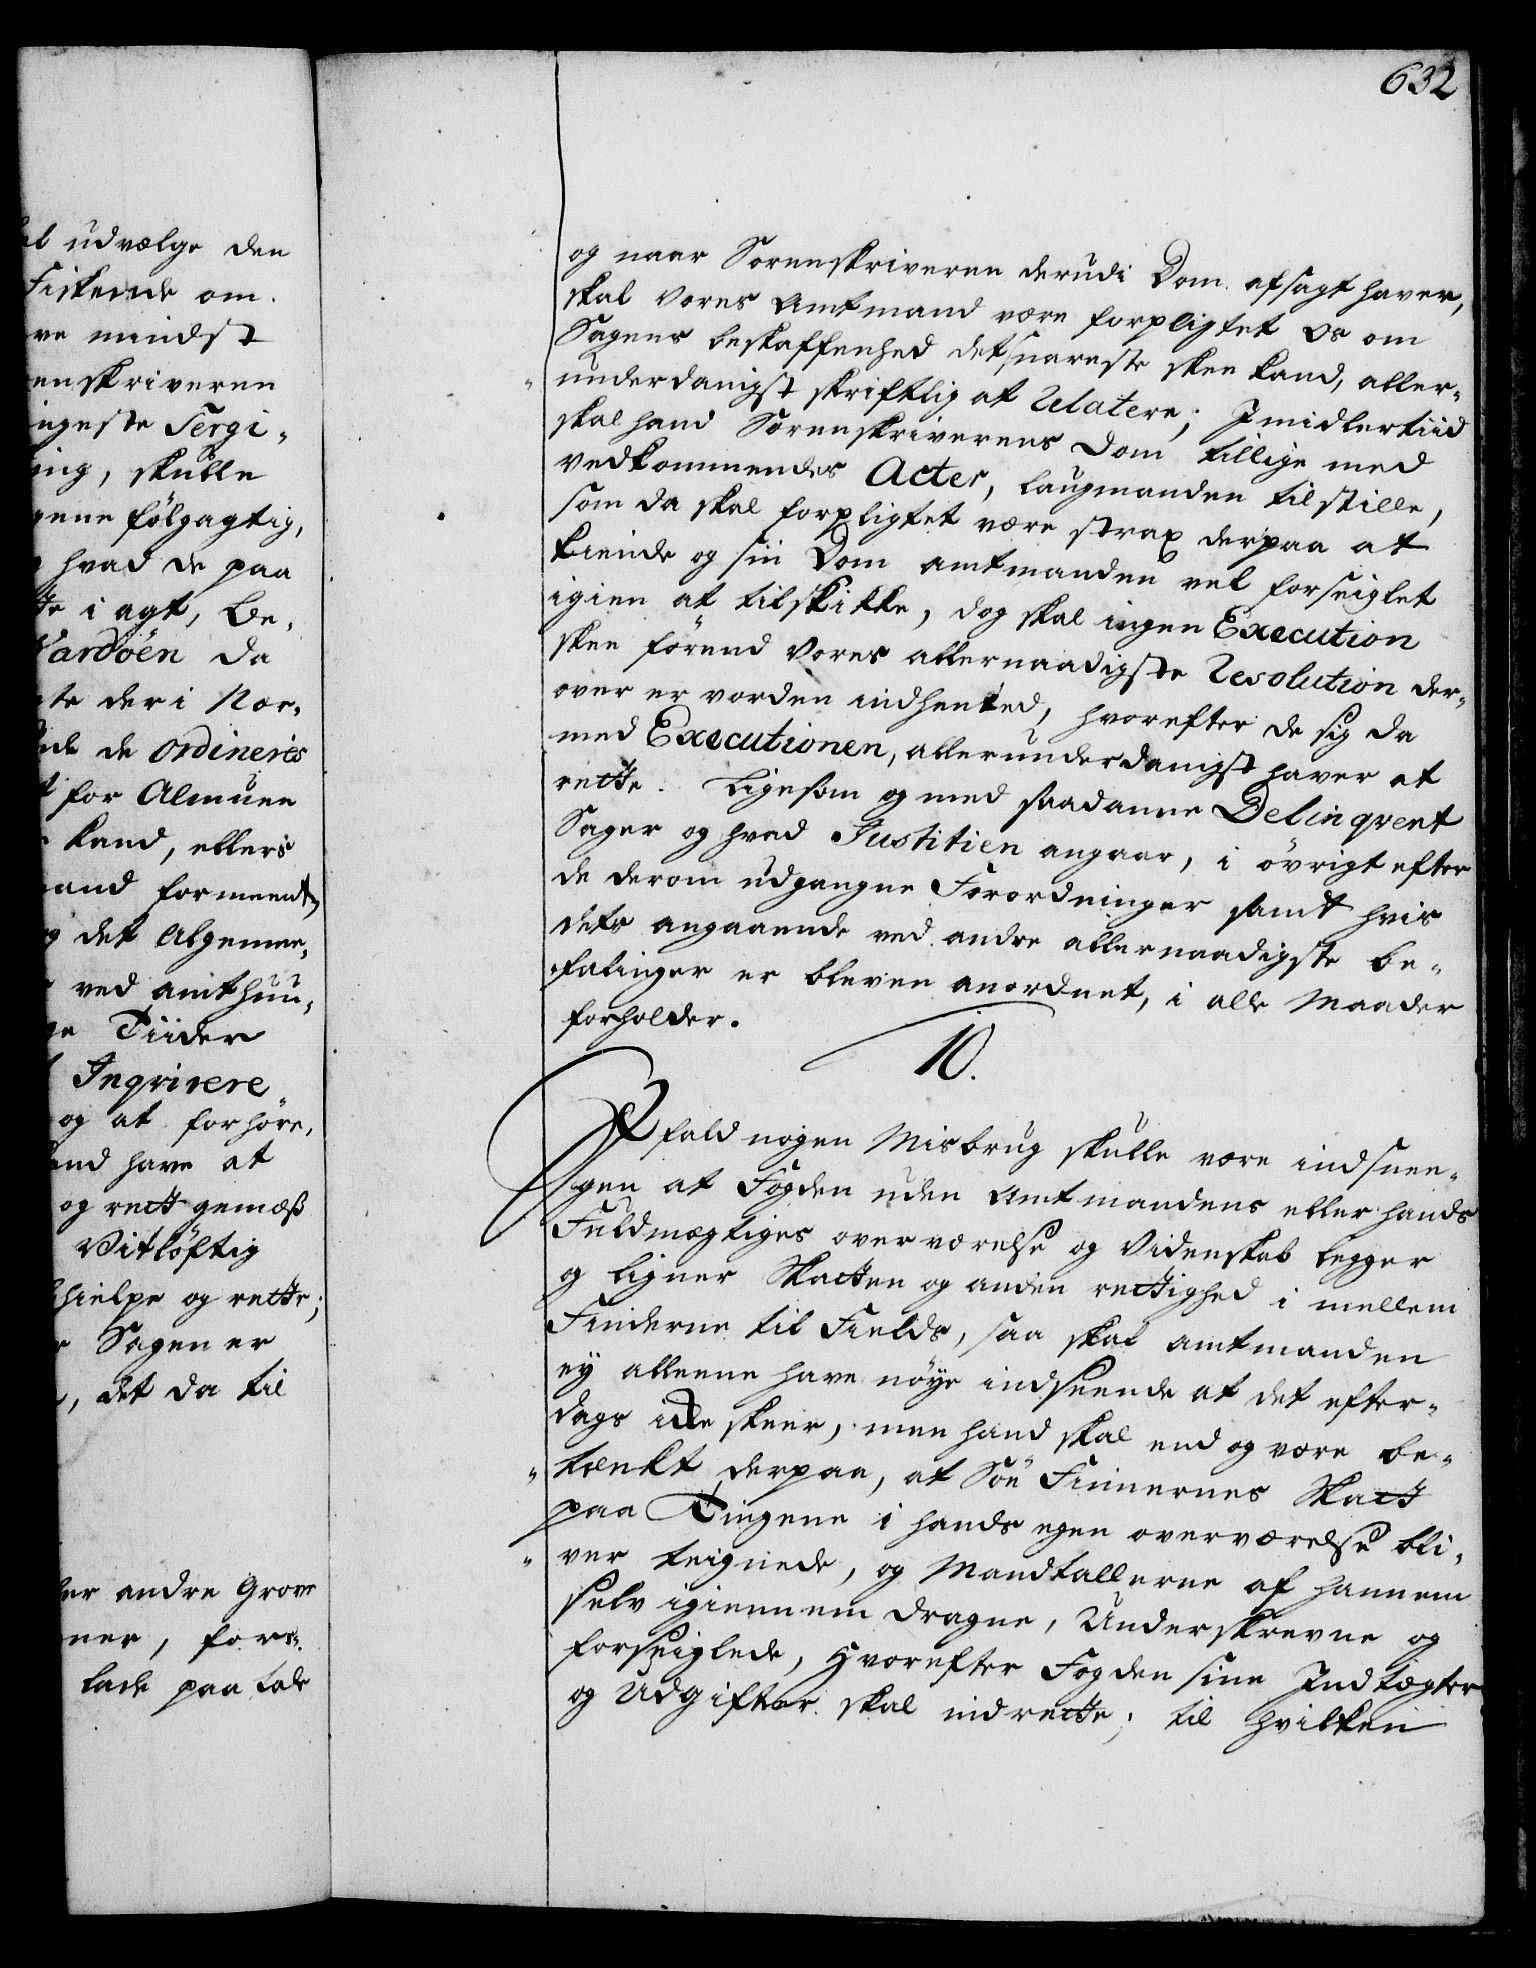 632
al udvælge den
Fiskende om.
re mindst
enskriveren
ingeste Tergi-
ing, skulle
gene fölgagtig,
hvad de paa
te i agt, Be-
Vardöen da
te der i Nor-
de Ordineris
for Almuen
kand, ellers
and formeent,
og det Algemee-
ved amthuu-
ge Tiider
Inqvirere
og at forhöre,
and have at
og rett gemæs
Vitlöftig
hielpe og rette;
Sagen er
, det da til
er andre Grove
ner, fors-
lade paatale
og naar Sorenskriveren derudi Dom afsagt haver,
skal Vores Amtmand være forpligtet Os om
Sagens beskaffenhed det snareste skee kand, aller-
underdanigst skriftlig at Relatere; Imidlertiid
skal hand Sorenskriverens Dom tillige med
vedkommendes Acter, Laugmanden tilstille,
som da skal forpligtet være strax derpaa at
kiende og sin Dom amtmanden vel forseiglet
igien at tilskikke, dog skal ingen Execution
skee förend Vores allernaadigste Resolution der-
over er vorden indhented, hvorefter de sig da
med Executionen, allerunderdanigst haver at
rette. Ligesom og med saadanne Delinqvent
Sager og hvad Justitien angaar, i övrigt efter
de derom udgangne Forordninger samt hvis
dets angaaende ved andre allernaadigste be-
falinger er bleven anordnet, i alle Maader
forholder.
10.
Ifald nogen Misbrug skulle være indsnee-
gen at Fogden uden Amtmandens eller hands
Fuldmægtiges overværelse og Videnskab legger
og ligner Skatten og anden rettighed i mellem
Finderne til Fields, saa skal amtmanden
ey alleene have nöye indseende at det efter-
dags icke skeer, men hand skal end og være be-
tænkt derpaa, at Söe Finnernes Skatt
paa Tingene i hands egen overværelse bli-
ver teignede, og Mandtallerne af hannem
selv igiennem dragne, Underskrevne og
forseiglede, Hvorefter Fogden sine Indtægter
og Udgifter skal indrette; til hvilken